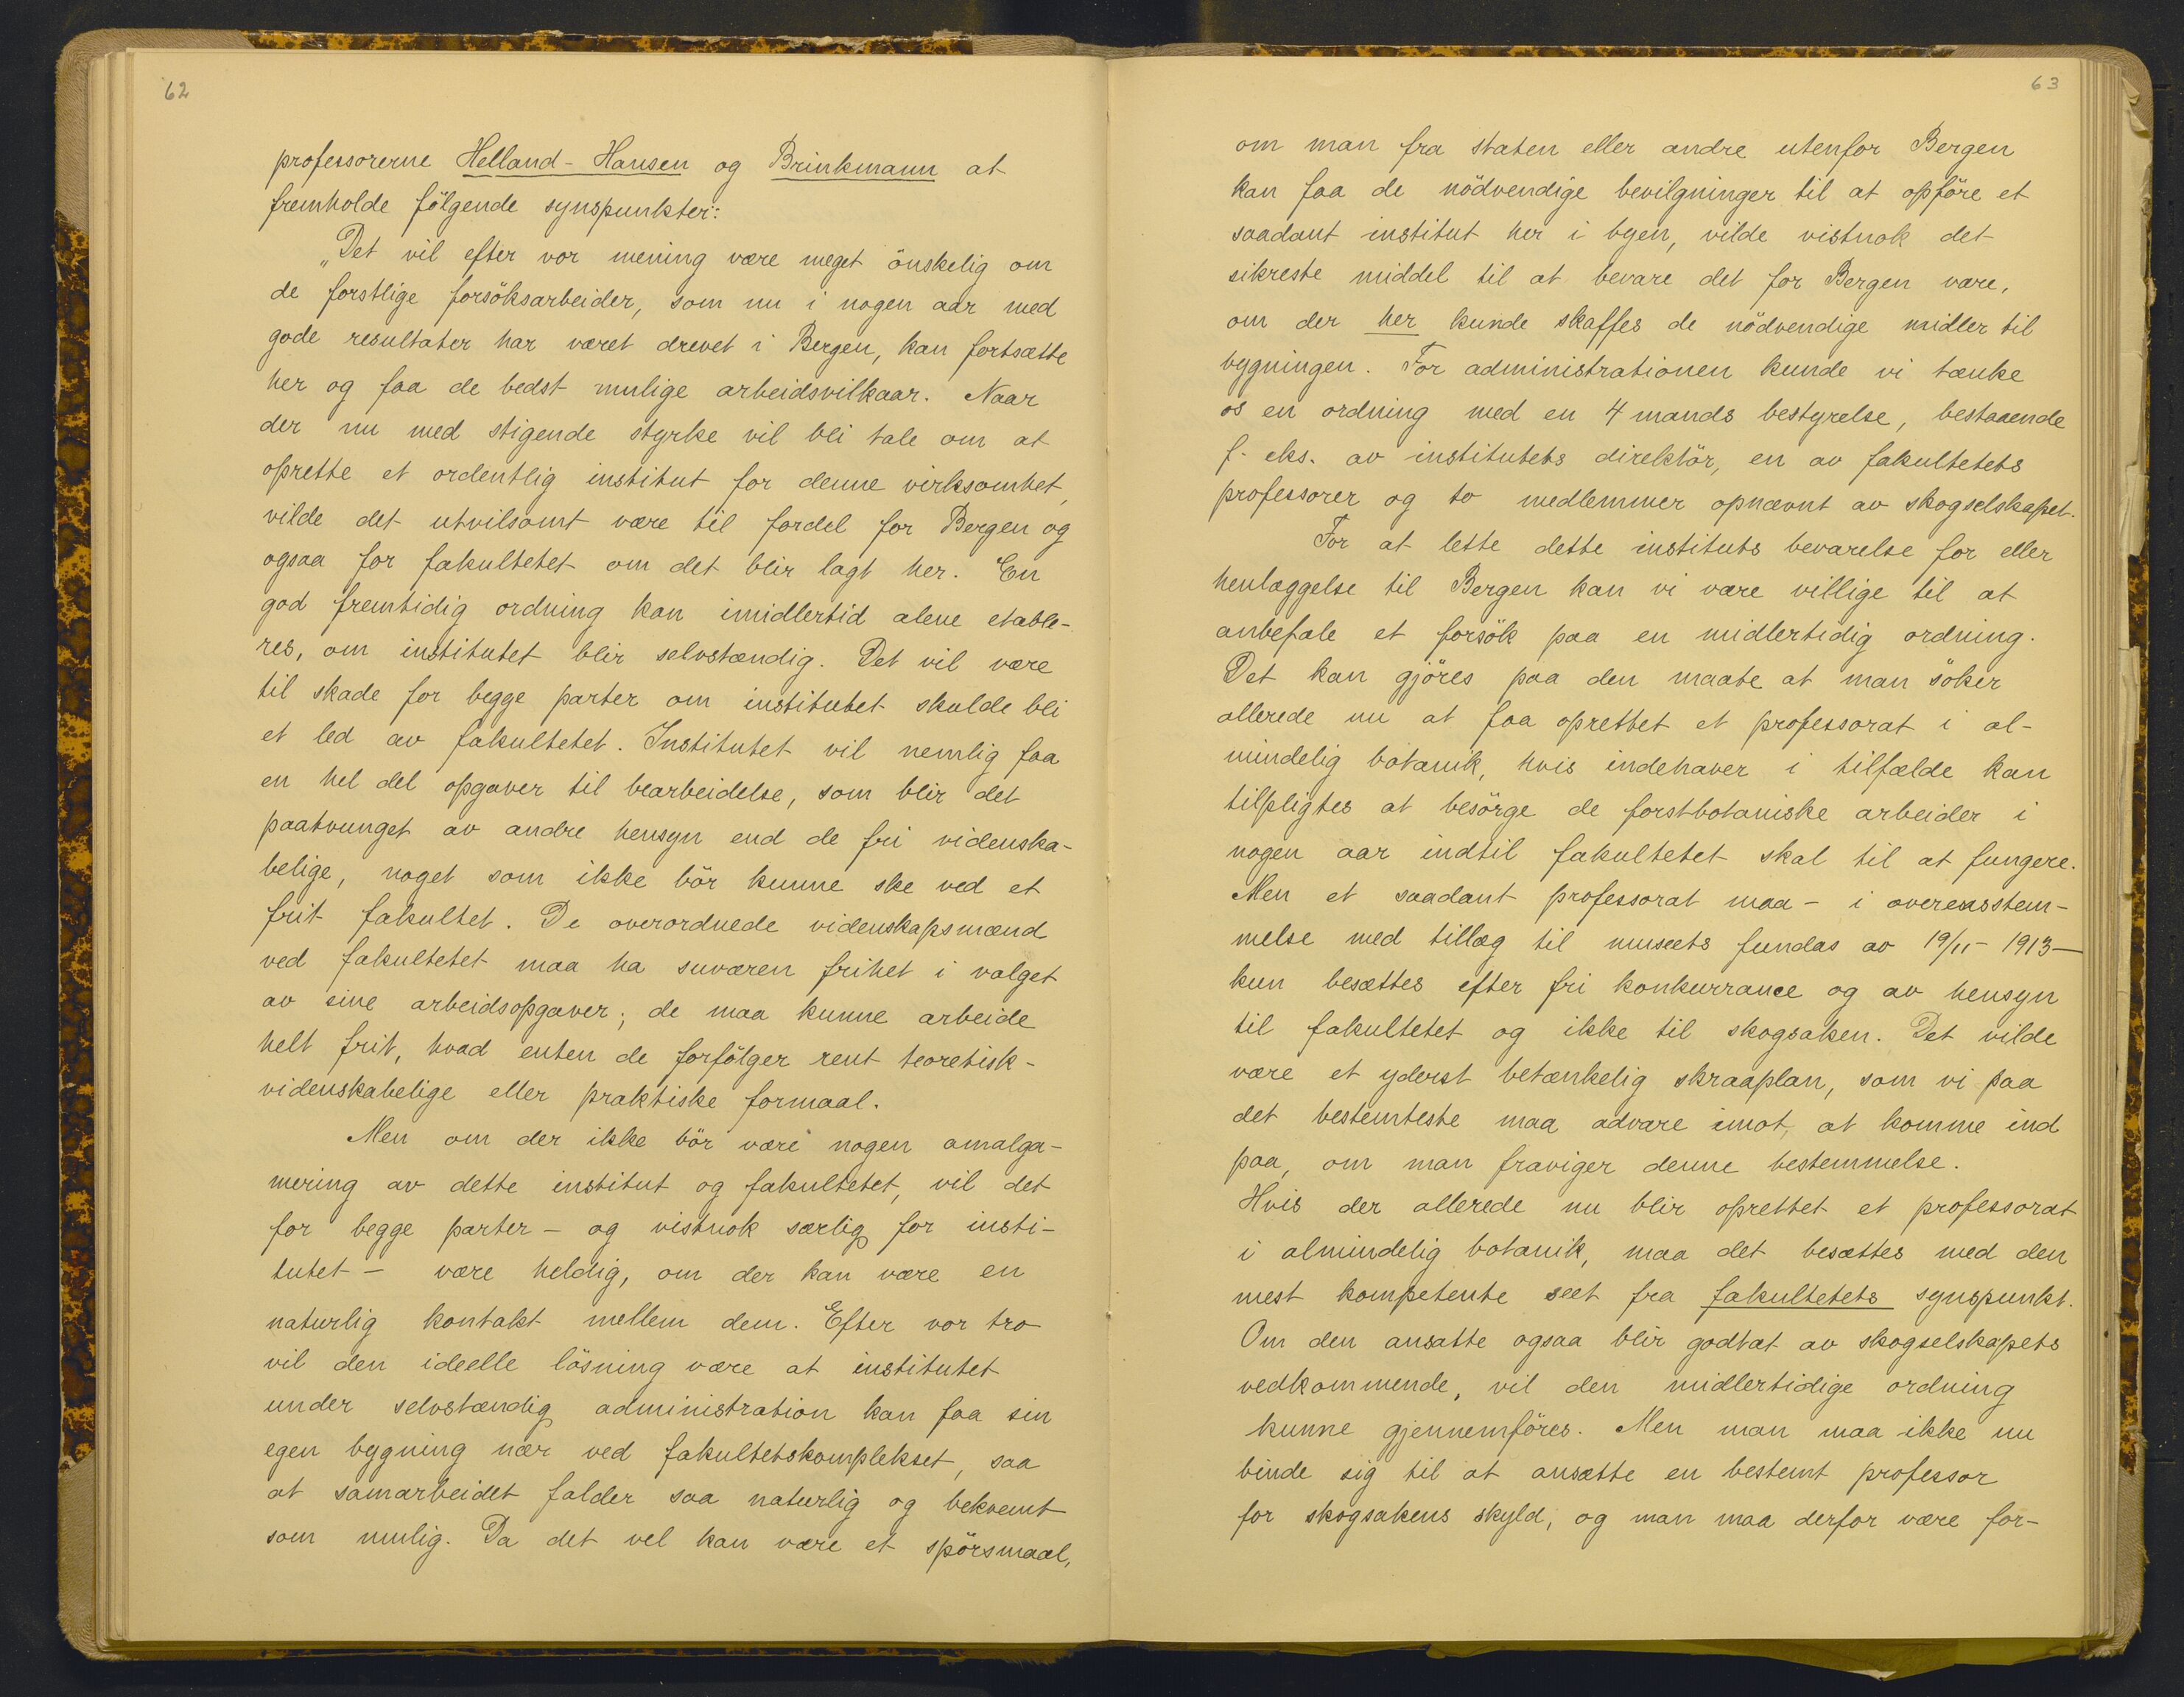 62
professorerne Helland-Hansen og Brinkmann at
fremholde fölgende synspunkter:
„Det vil efter vor mening være meget önskelig om
de forstlige forsöksarbeider, som nu i nogen aar med
gode resultater har været drevet i Bergen, kan fortsætte
her og faa de bedst mulige arbeidsvilkaar. Naar
der nu med stigende styrke vil bli tale om at
oprette et ordentlig institut for denne virksomhet,
vilde det utvilsomt være til fordel for Bergen og
ogsaa for fakultetet om det blir lagt her. En
god fremtidig ordning kan imidlertid alene etable-
res, om institutet blir selvstændig. Det vil være
til skade for begge parter om institutet skulde bli
et led av fakultetet. Institutet vil nemlig faa
en hel del opgaver til bearbeidelse, som blir det
paatvunget av andre hensyn end de fri videnska-
belige, noget som ikke bör kunne ske ved et
frit fakultet. De overordnede videnskapsmænd
ved fakultetet maa ha suværen frihet i valget
av sine arbeidsopgaver; de maa kunne arbeide
helt frit, hvad enten de forfölger rent teoretisk-
videnskabelige eller praktiske formaal.
Men om der ikke bör være nogen amalga-
mering av dette institut og fakultetet, vil det
for begge parter – og vistnok særlig for insti-
tutet – være heldig, om der kan være en
naturlig kontakt mellem dem. Efter vor tro
vil den ideelle lösning være at institutet
under selvstændig administration kan faa sin
egen bygning nær ved fakultetskomplekset, saa
at samarbeidet falder saa naturlig og bekvemt
som mulig. Da det vel kan være et spörsmaal,
63
om man fra staten eller andre utenfor Bergen
kan faa de nödvendige bevilgninger til at opföre et
saadant institut her i byen, vilde vistnok det
sikreste middel til at bevare det for Bergen være,
om der her kunde skaffes de nödvendige midler til
bygningen. For administrationen kunde vi tænke
os en ordning med en 4 mands bestyrelse, bestaaende
f. eks. av institutets direktör, en av fakultetets
professorer og to medlemmer opnævnt av skogselskapet.
For at lette dette instituts bevarelse for eller
henlæggelse til Bergen kan vi være villige til at
anbefale et forsök paa en midlertidig ordning.
Det kan gjöres paa den maate at man söker
allerede nu at faa oprettet et professorat i al-
mindelig botanik, hvis indehaver i tilfælde kan
tilpligtes at besörge de forstbotaniske arbeider i
nogen aar indtil fakultetet skal til at fungere.
Men et saadant professorat maa – i overensstem-
melse med tillæg til museets fundas av 19/11 – 1913 –
kun besættes efter fri konkurrance og av hensyn
til fakultetet og ikke til skogsaken. Det vilde
være et yderst betænkelig skraaplan, som vi paa
det bestemteste maa advare imot, at komme ind
paa, om man fraviger denne bestemmelse.
Hvis der allerede nu blir oprettet et professorat
i almindelig botanik, maa det besættes med den
mest kompetente seet fra fakultetets synspunkt.
Om den ansatte ogsaa blir godtat av skogselskapets
vedkommende, vil den midlertidige ordning
kunne gjennemföres. Men man maa ikke nu
binde sig til at ansætte en bestemt professor
for skogsakens skyld, og man maa derfor være for-